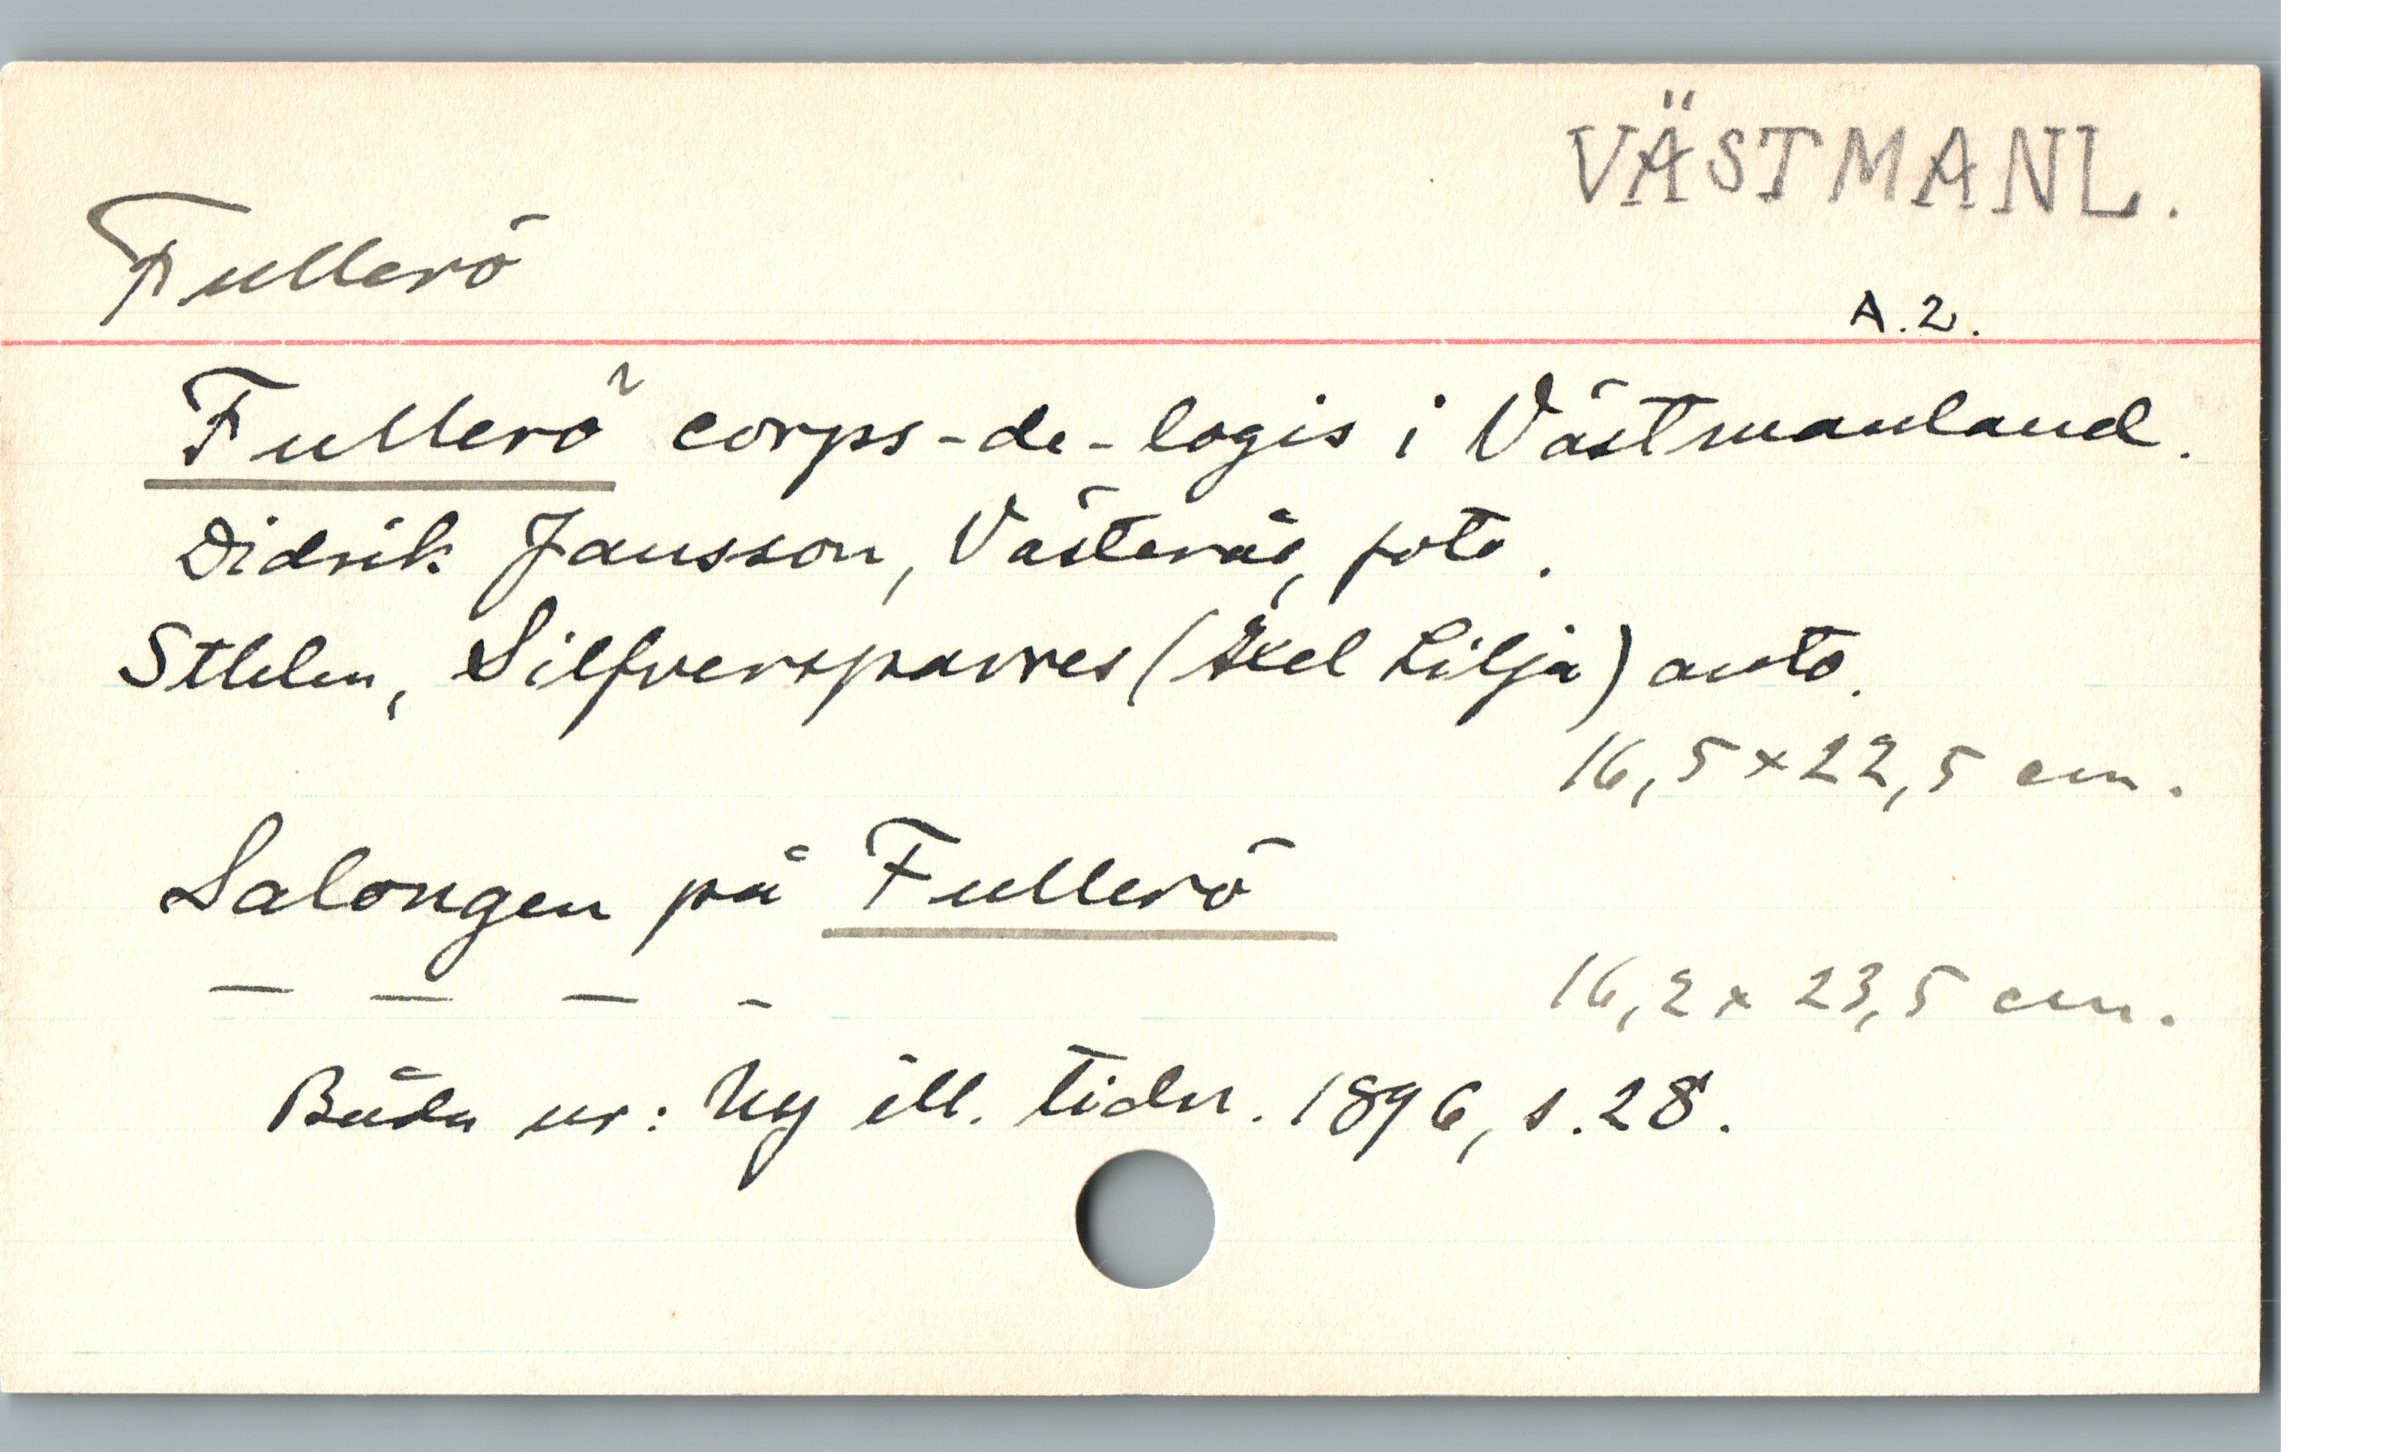 VÄSTMANL.
Fullerö
A.2.
Fullerö corps-de-logis i Västmanland.
Didrik Jansson, Västerås, foto.
Sthlm, Silfversparres (Axel Lilja) auto.
16,5 x 22,5 cm.
Salongen på Fullerö
— — — -
16,2 x 23,5 cm.
Båda ur: Ny ill. tidn. 1896, s. 28.